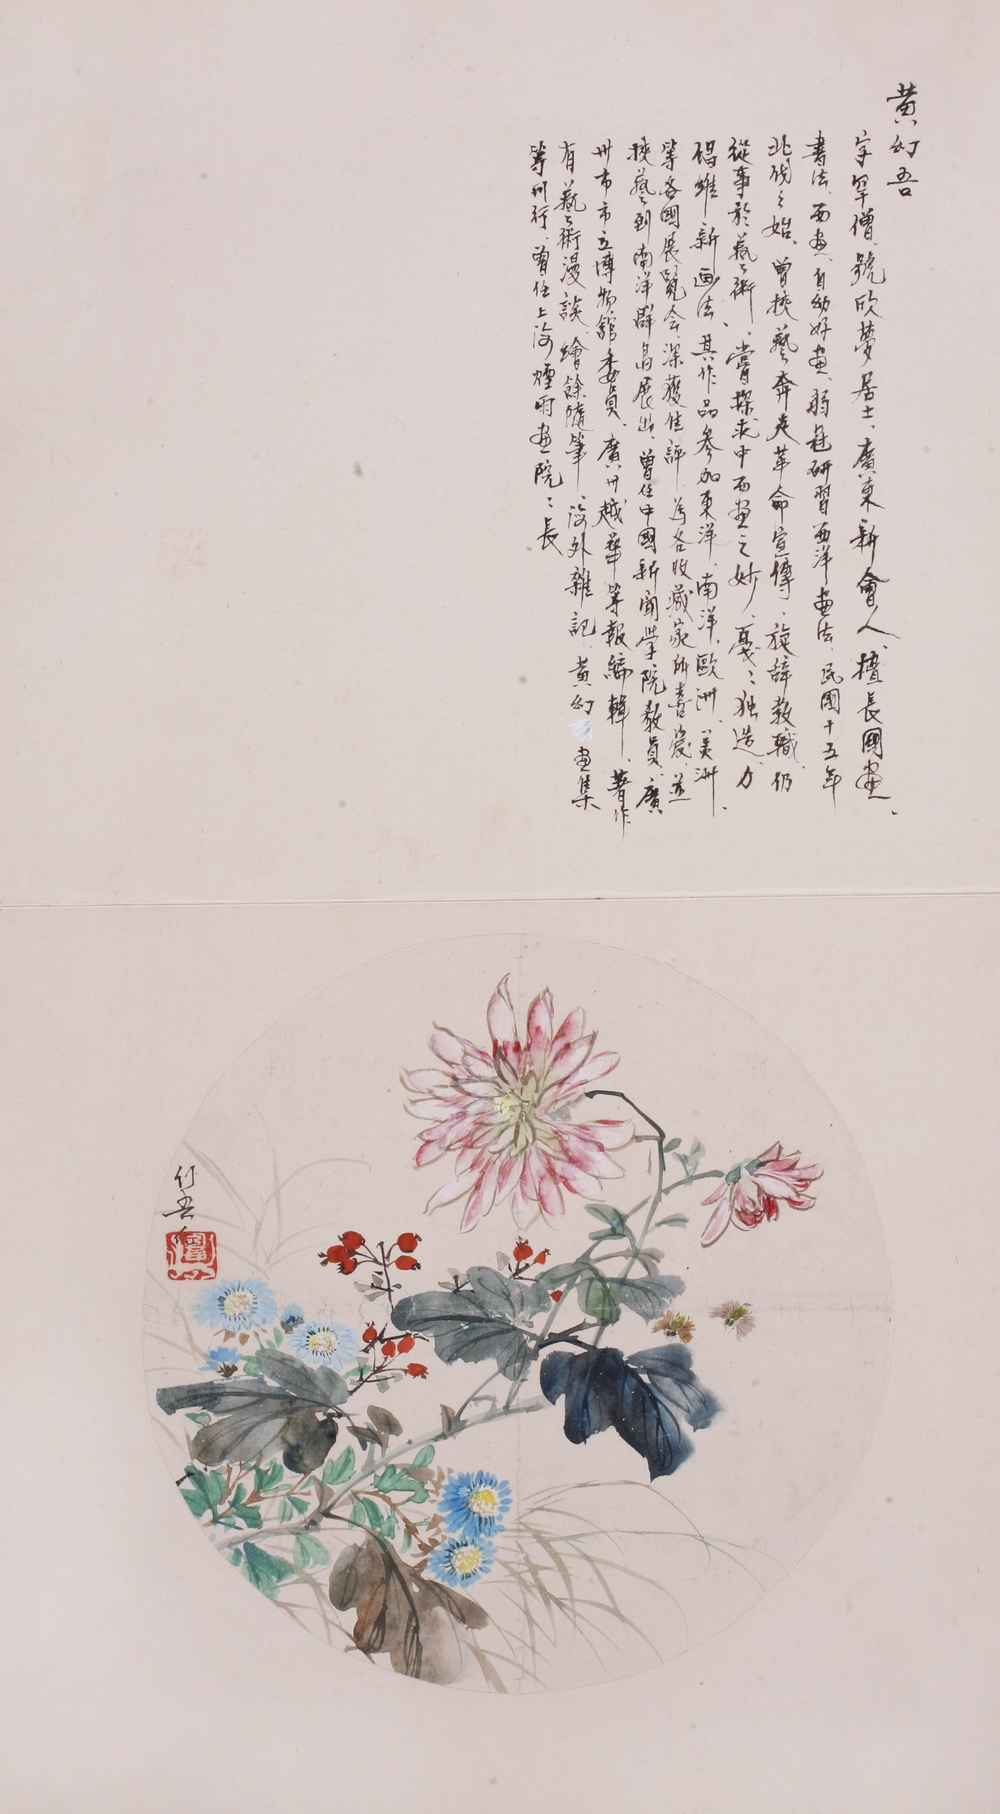 黄幻吾
字罕僧、號欣夢居士、廣東新會人、擅長國畫、
書法、西畫、自幼好畫、弱冠研習西洋畫法、民國十五年
北伐之始、曾挾藝奔走革命宣傳、旋辞教職、仍
從事於藝術、嘗探求中西畫之妙、戛戛独造、力
倡維新画法、其作品參加東洋、南洋、歐洲、美洲、
等各國展覽会、深獲佳評、為各收藏家所喜愛、並
挾藝到南洋群島展出、曾任中國新聞學院教員、廣
州市市立博物館委員、廣州越華等報編輯、著作
有藝術漫談、繪餘隨筆、海外雜記、黄幻吾畫集
等刊行、曾任上海煙雨畫院院長
幻吾